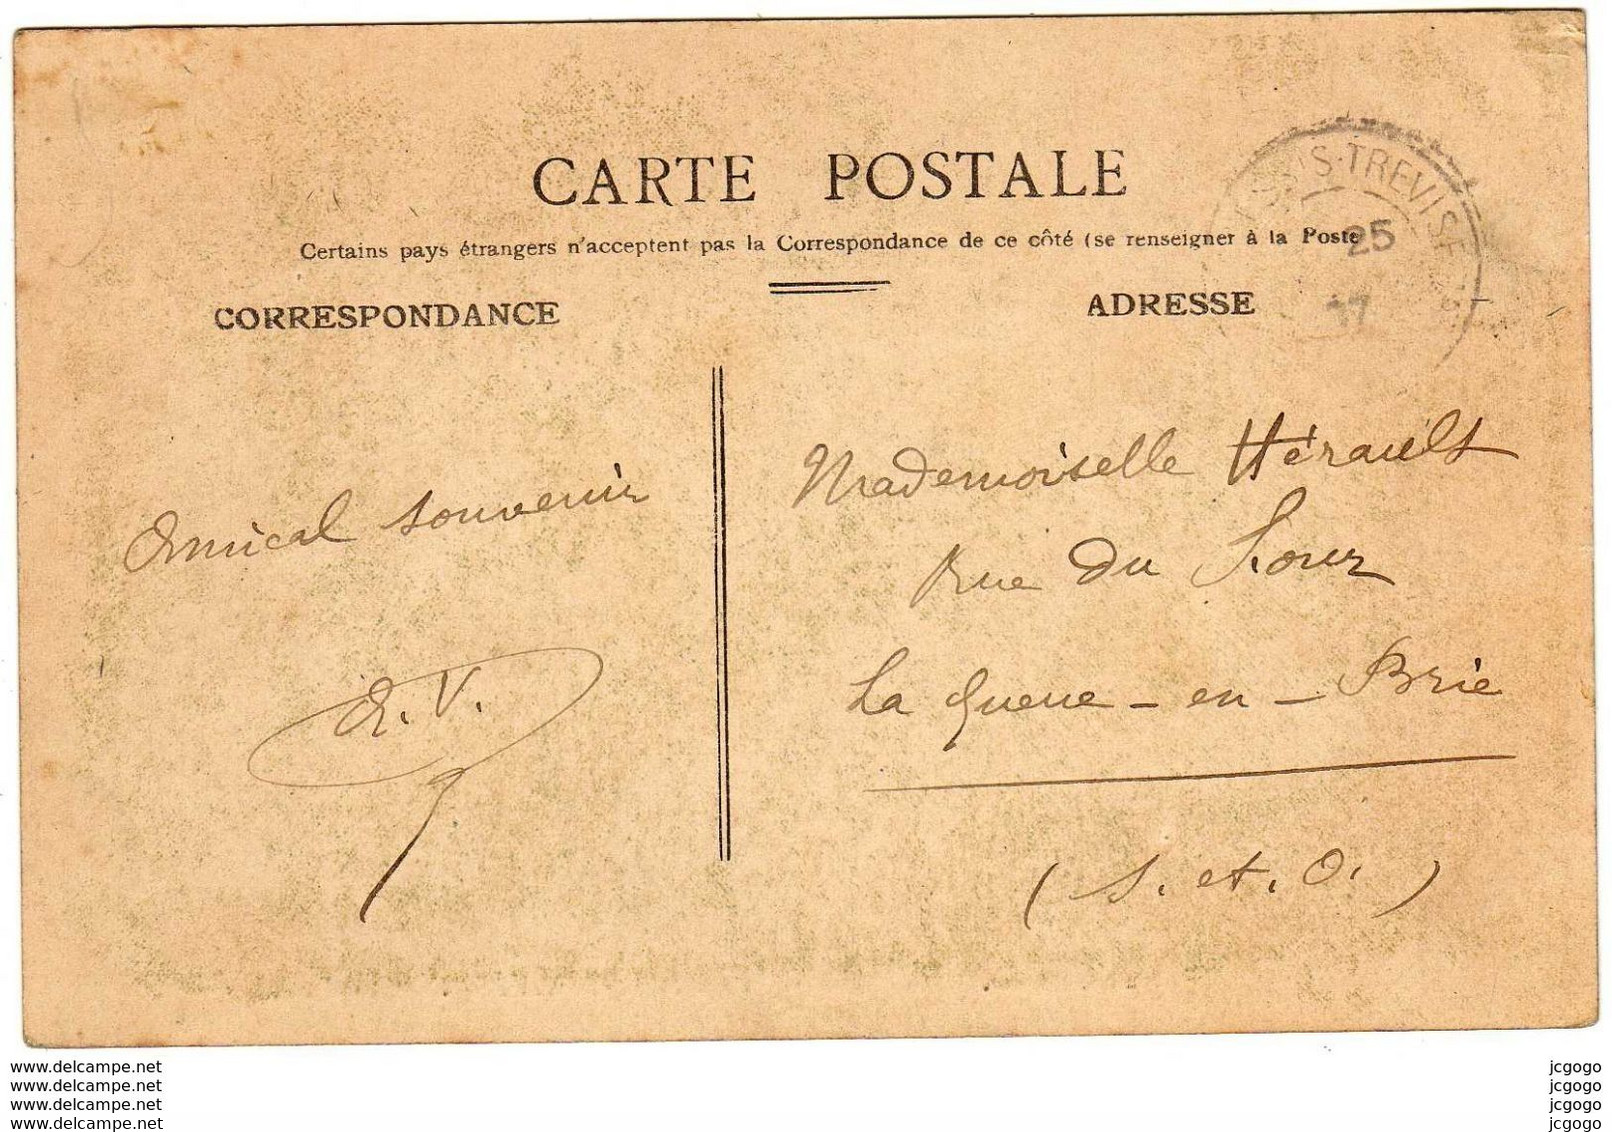 CARTE POSTALE
Certains pays étrangers n'acceptent pas la Correspondance de ce côté (se renseigner à la Poste
CORRESPONDANCE
ADRESSE
TREVISE
25
17
Amical souvenir
V.
Mademoiselle Hérault
Rue du Four
La Queue - en - Brie
(S. et. O.)
www.delcampe.net
www.delcampe.net
www.delcampe.net
www.delcampe.net
jcgogo
jcgogo
jcgogo
jcgogo